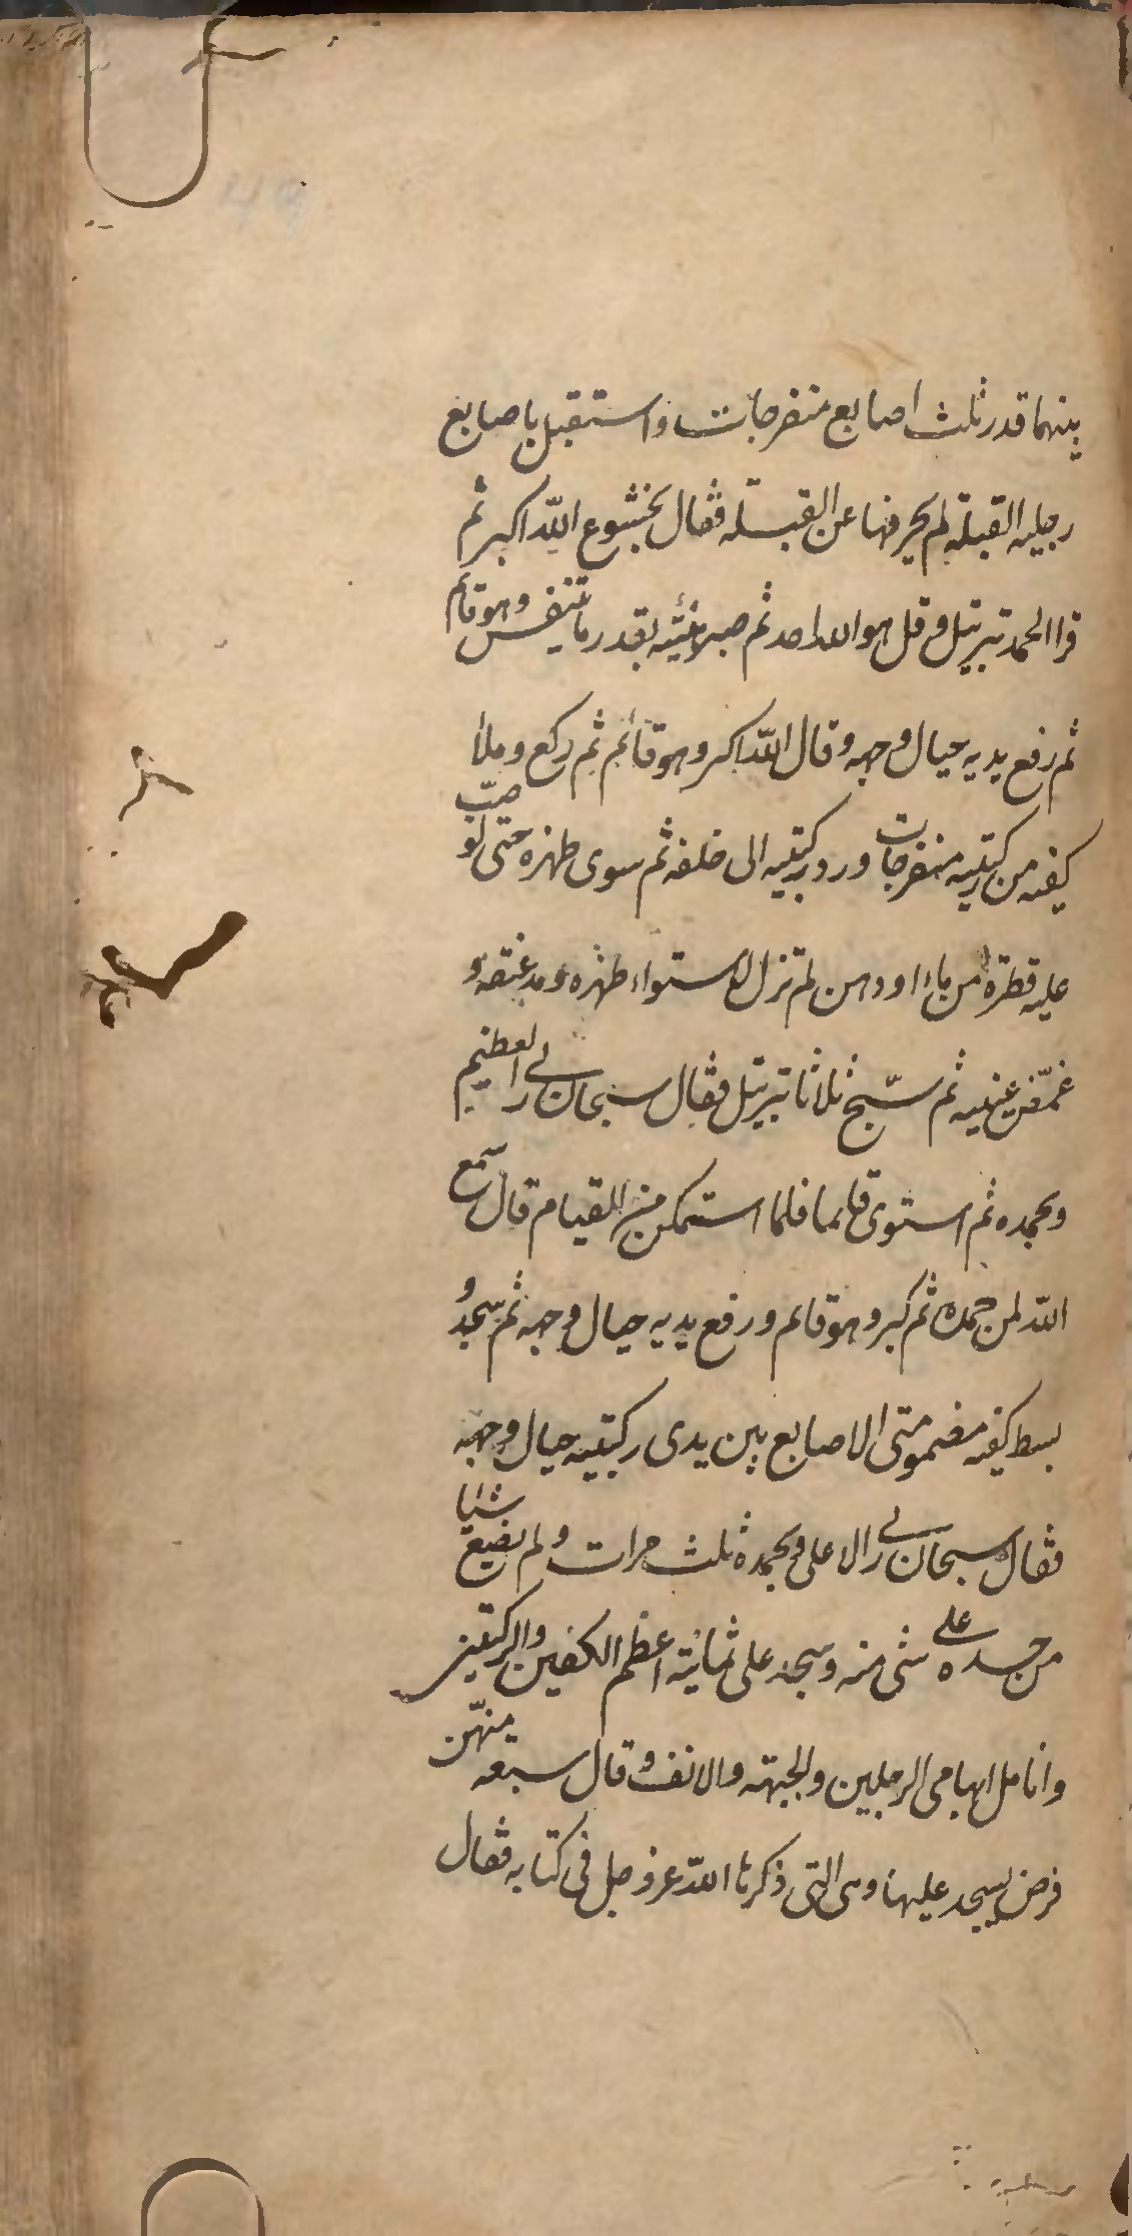 بينهما قدر ثلث اصابع منفرجات واستقبل باصابع
رجليه القبلة لم يحرفها عن القبلة فقال بخشوع الله اكبر ثم
قرا الحمد بترتيل و قل هو الله احد ثم صبر هنيئة بقدر ما يتنفس وهو قائم
ثم رفع يديه حيال وجهه وقال الله اكبر وهو قائم ثم ركع وملأ
كفيه من ركبتيه منفرجات ورد ركبتيه الى خلفه ثم سوى ظهره حتى لو صبّ
عليه قطرة من ماء او دهن لم تزل لاستواء ظهره ومد عنقه و
غمّض عينيه ثم سبّح ثلاثا بترتيل فقال سبحان ربي العظيم
وبحمده ثم استوى قائما فلما استمكن من القيام قال سمع
الله لمن حمده ثم كبر وهو قائم ورفع يديه حيال وجهه ثم سجد و
بسط كفيه مضمومتى الاصابع بين يدى ركبتيه حيال وجهه
فقال سبحان ربي الاعلى وبحمده ثلث مرات ولم يضع شيئا
من جسده على شى منه وسجد على ثمانية اعظم الكفين والركبتين
وانامل ابهامى الرجلين والجبهة والانف وقال سبعة منهن
فرض يسجد عليها وهى التى ذكرها الله عز وجل فى كتابه فقال